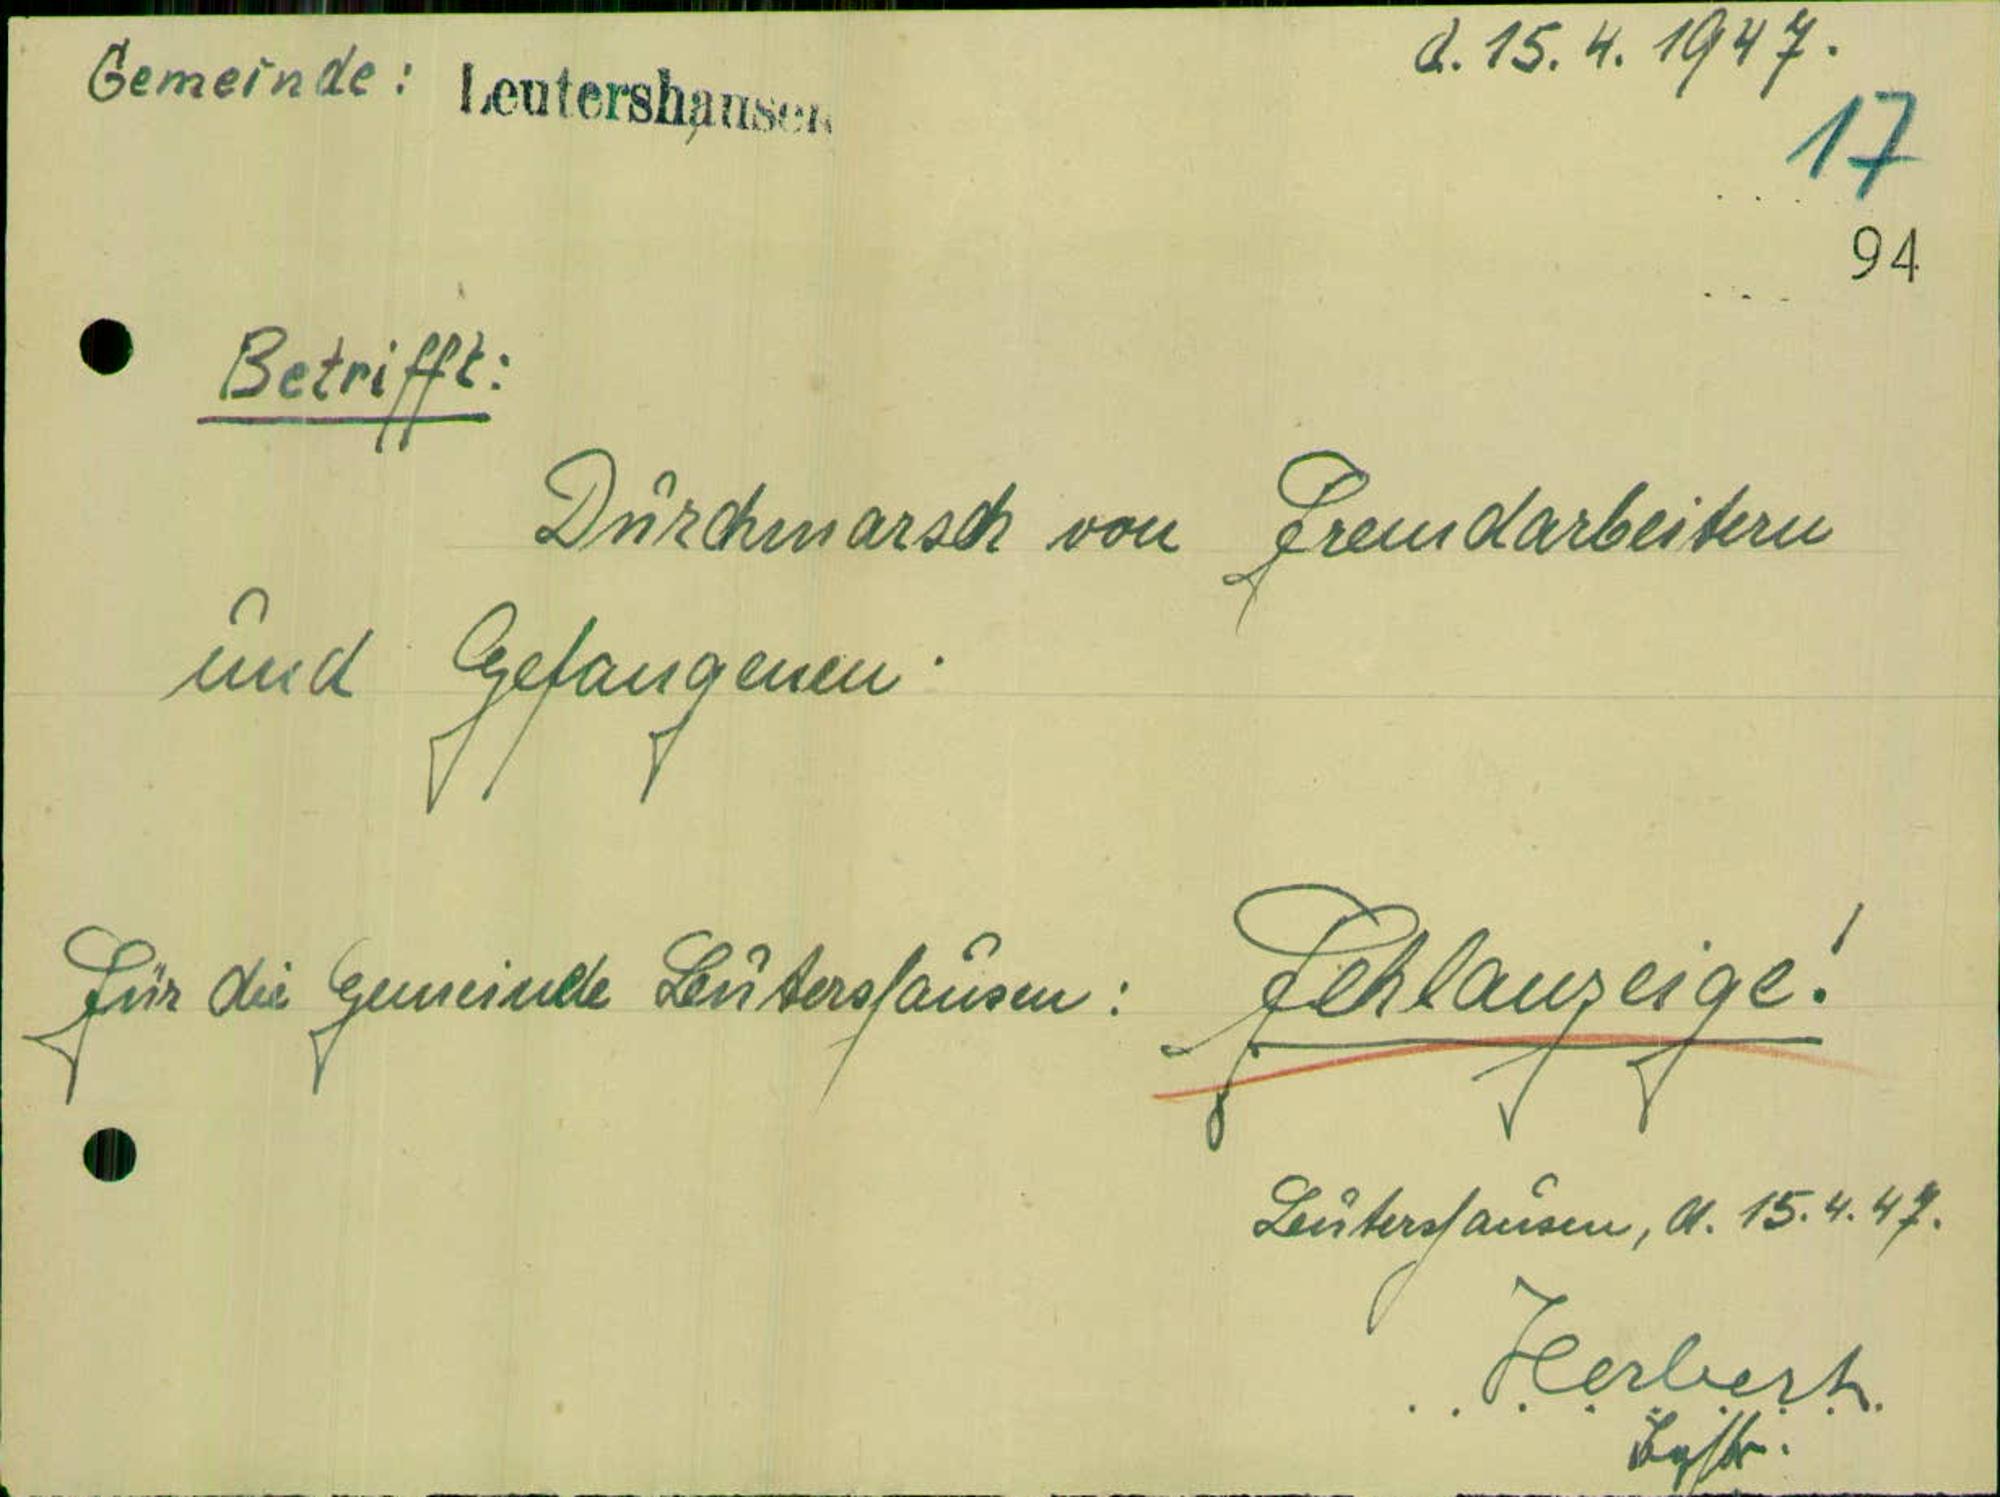 Gemeinde: Leutershausen
d. 15. 4. 1947.
17
94
Betrifft:
Durchmarsch von Fremdarbeitern
und Gefangenen.
Für die Gemeinde Leutershausen: Fehlanzeige!
Leutershausen, d. 15. 4. 47.
Herbert.
Bgstr.